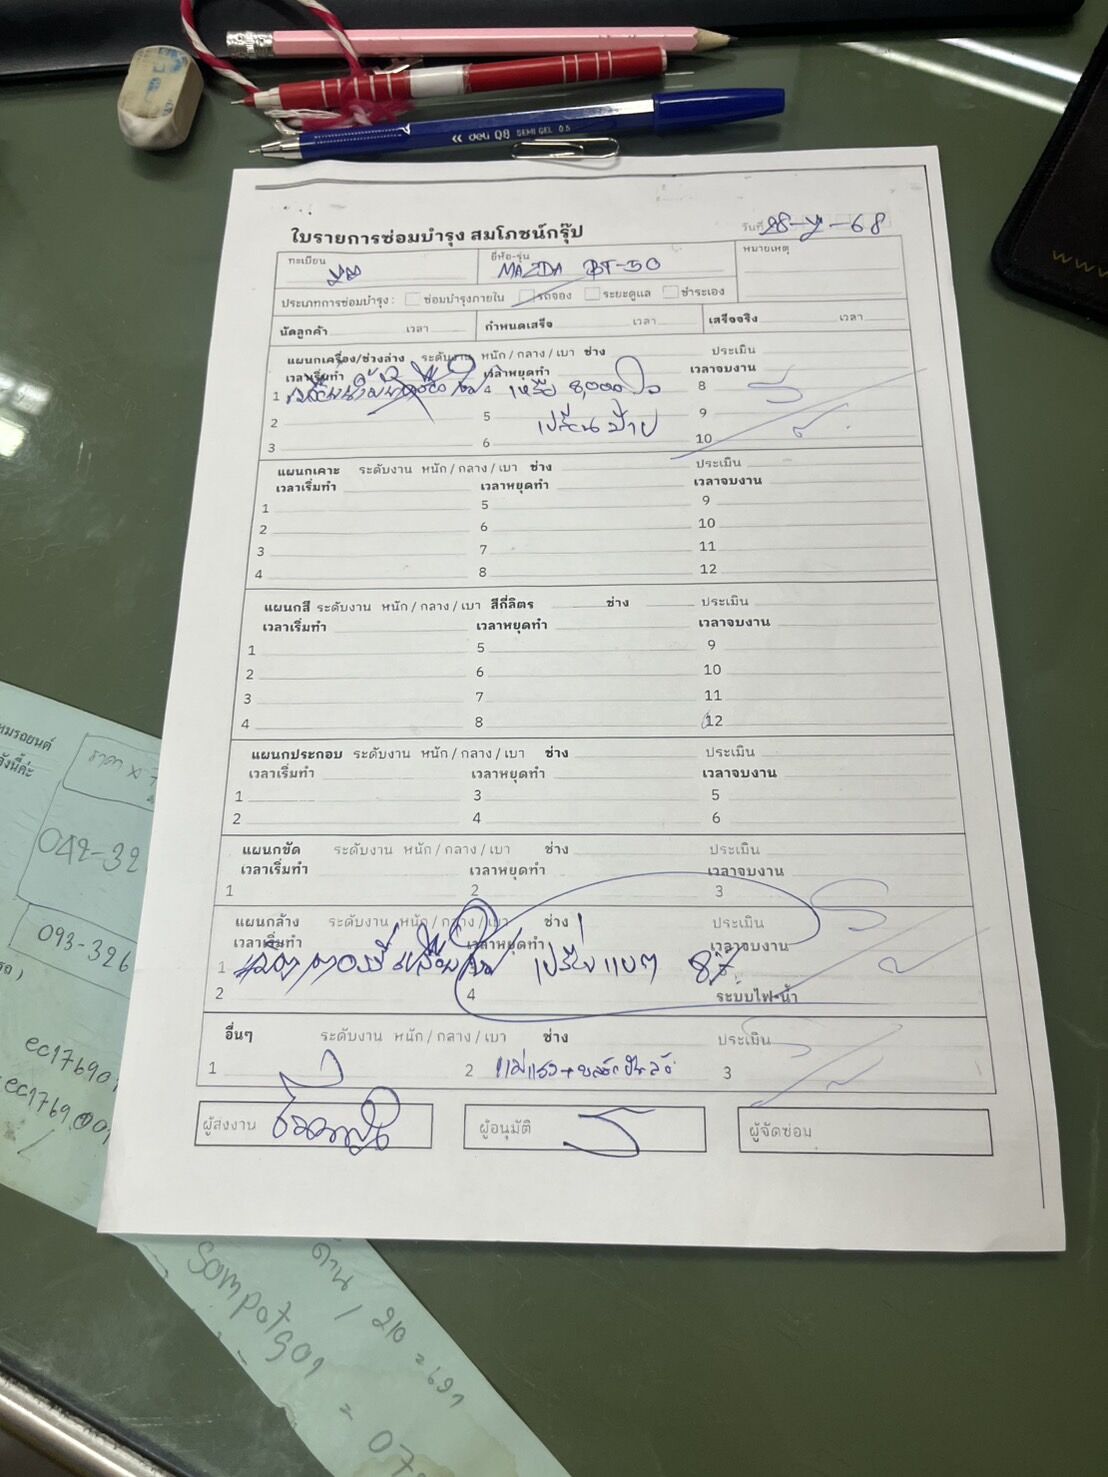 deli Q8 SEMI GEL 0.5
ใบรายการซ่อมบำรุง สมโภชน์กรุ๊ป
วันที่ -68
ทะเบียน
ยี่ห้อ-รุ่น MAZDA BT-50
หมายเหตุ
ประเภทการซ่อมบำรุง : ซ่อมบำรุงภายใน รถจอง ระยะดูแล ชำระเอง
นัดลูกค้า เวลา กำหนดเสร็จ เวลา เสร็จจริง เวลา
แผนกเครื่อง/ช่วงล่าง ระดับงาน หนัก / กลาง / เบา ช่าง ประเมิน
เวลาเริ่มทำ เวลาหยุดทำ เวลาจบงาน
1 4 เหลือ 8,000 โล 8
2 5 เปลี่ยนป้าย 9
3 6 10
แผนกเคาะ ระดับงาน หนัก / กลาง / เบา ช่าง ประเมิน
เวลาเริ่มทำ เวลาหยุดทำ เวลาจบงาน
1 5 9
2 6 10
3 7 11
4 8 12
แผนกสี ระดับงาน หนัก / กลาง / เบา สีกี่ลิตร ช่าง ประเมิน
เวลาเริ่มทำ เวลาหยุดทำ เวลาจบงาน
1 5 9
2 6 10
3 7 11
4 8 12
แผนกประกอบ ระดับงาน หนัก / กลาง / เบา ช่าง ประเมิน
เวลาเริ่มทำ เวลาหยุดทำ เวลาจบงาน
1 3 5
2 4 6
แผนกขัด ระดับงาน หนัก / กลาง / เบา ช่าง ประเมิน
เวลาเริ่มทำ เวลาหยุดทำ เวลาจบงาน
1 2 3
แผนกล้าง ระดับงาน หนัก / กลาง / เบา ช่าง ประเมิน
เวลาเริ่มทำ เวลาหยุดทำ เวลาจบงาน
1
2 4 ระบบไฟ-น้ำ
อื่นๆ ระดับงาน หนัก / กลาง / เบา ช่าง ประเมิน
1 2 3
ผู้ส่งงาน ผู้อนุมัติ ผู้จัดซ่อม
ราคา x
042-32
093-326
ec1769
ec1769
210 = 69